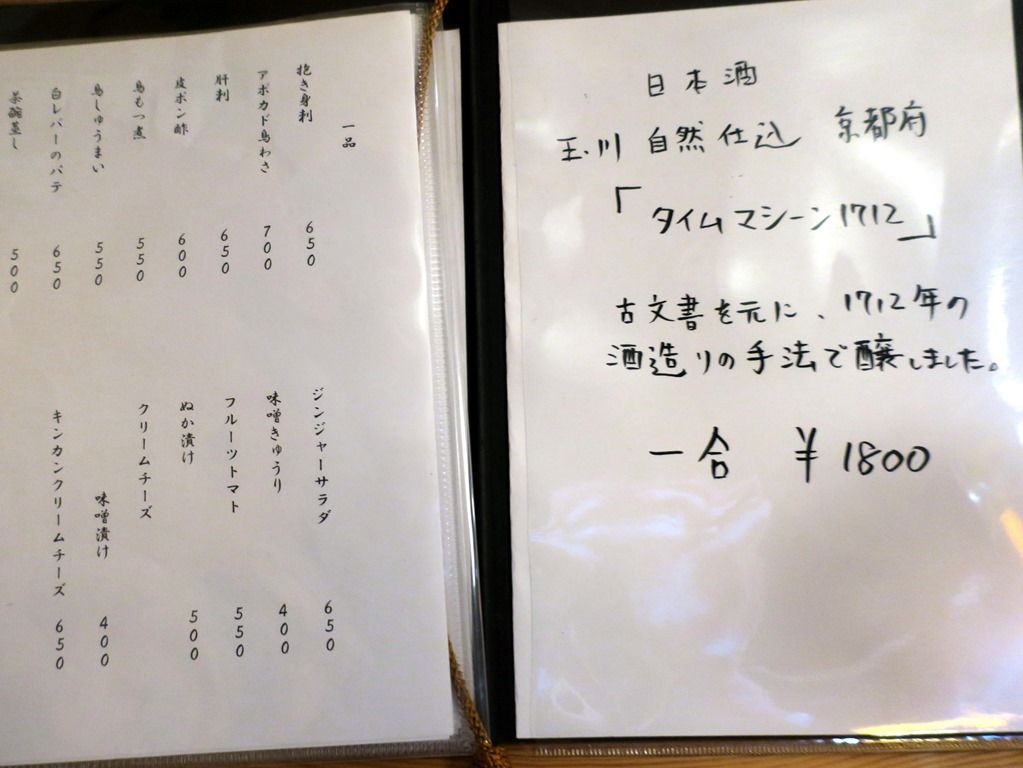 一品
抱き身刺 650
アボカド鳥わさ 700
肝刺 650
皮ポン酢 600
鳥もつ煮 550
鳥しゅうまい 550
白レバーのパテ 650
茶碗蒸し 500
ジンジャーサラダ 650
味噌きゅうり 400
フルーツトマト 550
ぬか漬け 500
クリームチーズ
味噌漬け 400
キンカンクリームチーズ 650
日本酒
玉川 自然仕込 京都府
「タイムマシーン1712」
古文書を元に、1712年の
酒造りの手法で醸しました。
一合 ¥1800